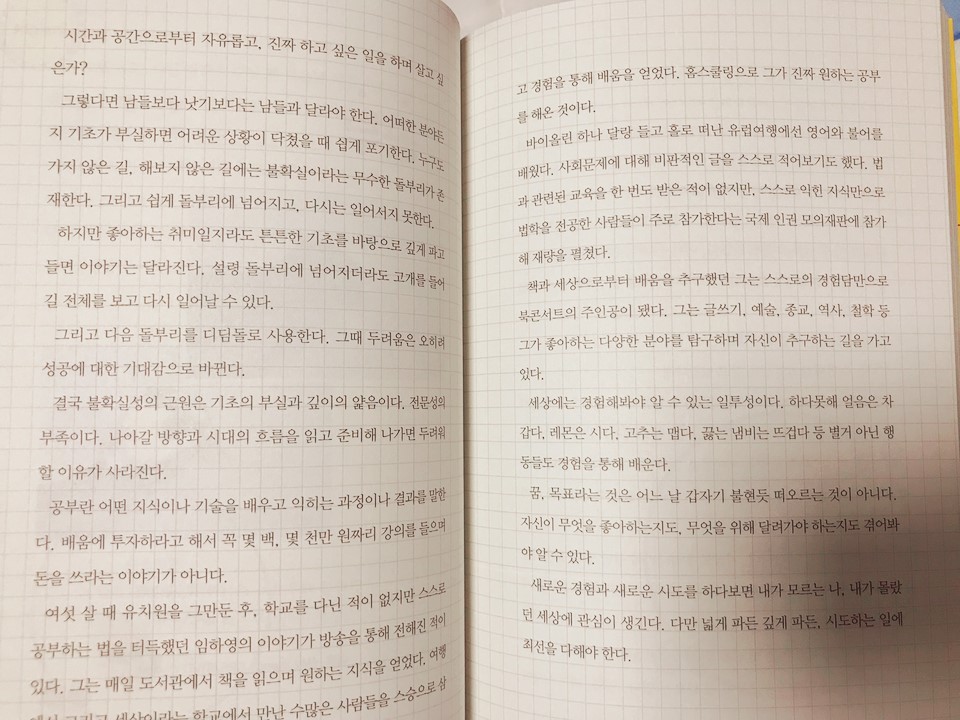 시간과 공간으로부터 자유롭고, 진짜 하고 싶은 일을 하며 살고 싶
은가?
그렇다면 남들보다 낫기보다는 남들과 달라야 한다. 어떠한 분야든
지 기초가 부실하면 어려운 상황이 닥쳤을 때 쉽게 포기한다. 누구도
가지 않은 길, 해보지 않은 길에는 불확실이라는 무수한 돌부리가 존
재한다. 그리고 쉽게 돌부리에 넘어지고, 다시는 일어서지 못한다.
하지만 좋아하는 취미일지라도 튼튼한 기초를 바탕으로 깊게 파고
들면 이야기는 달라진다. 설령 돌부리에 넘어지더라도 고개를 들어
길 전체를 보고 다시 일어날 수 있다.
그리고 다음 돌부리를 디딤돌로 사용한다. 그때 두려움은 오히려
성공에 대한 기대감으로 바뀐다.
결국 불확실성의 근원은 기초의 부실과 깊이의 얇음이다. 전문성의
부족이다. 나아갈 방향과 시대의 흐름을 읽고 준비해 나가면 두려워
할 이유가 사라진다.
공부란 어떤 지식이나 기술을 배우고 익히는 과정이나 결과를 말한
다. 배움에 투자하라고 해서 꼭 몇 백, 몇 천만 원짜리 강의를 들으며
돈을 쓰라는 이야기가 아니다.
여섯 살 때 유치원을 그만둔 후, 학교를 다닌 적이 없지만 스스로
공부하는 법을 터득했던 임하영의 이야기가 방송을 통해 전해진 적이
있다. 그는 매일 도서관에서 책을 읽으며 원하는 지식을 얻었다. 여행
에서 그리고 세상이라는 학교에서 만난 수많은 사람들을 스승으로 삼
고 경험을 통해 배움을 얻었다. 홈스쿨링으로 그가 진짜 원하는 공부
를 해온 것이다.
바이올린 하나 달랑 들고 홀로 떠난 유럽여행에선 영어와 불어를
배웠다. 사회문제에 대해 비판적인 글을 스스로 적어보기도 했다. 법
과 관련된 교육을 한 번도 받은 적이 없지만, 스스로 익힌 지식만으로
법학을 전공한 사람들이 주로 참가한다는 국제 인권 모의재판에 참가
해 재량을 펼쳤다.
책과 세상으로부터 배움을 추구했던 그는 스스로의 경험담만으로
북콘서트의 주인공이 됐다. 그는 글쓰기, 예술, 종교, 역사, 철학 등
그가 좋아하는 다양한 분야를 탐구하며 자신이 추구하는 길을 가고
있다.
세상에는 경험해봐야 알 수 있는 일투성이다. 하다못해 얼음은 차
갑다, 레몬은 시다, 고추는 맵다, 끓는 냄비는 뜨겁다 등 별거 아닌 행
동들도 경험을 통해 배운다.
꿈, 목표라는 것은 어느 날 갑자기 불현듯 떠오르는 것이 아니다.
자신이 무엇을 좋아하는지도, 무엇을 위해 달려가야 하는지도 겪어봐
야 알 수 있다.
새로운 경험과 새로운 시도를 하다보면 내가 모르는 나, 내가 몰랐
던 세상에 관심이 생긴다. 다만 넓게 파든 깊게 파든, 시도하는 일에
최선을 다해야 한다.